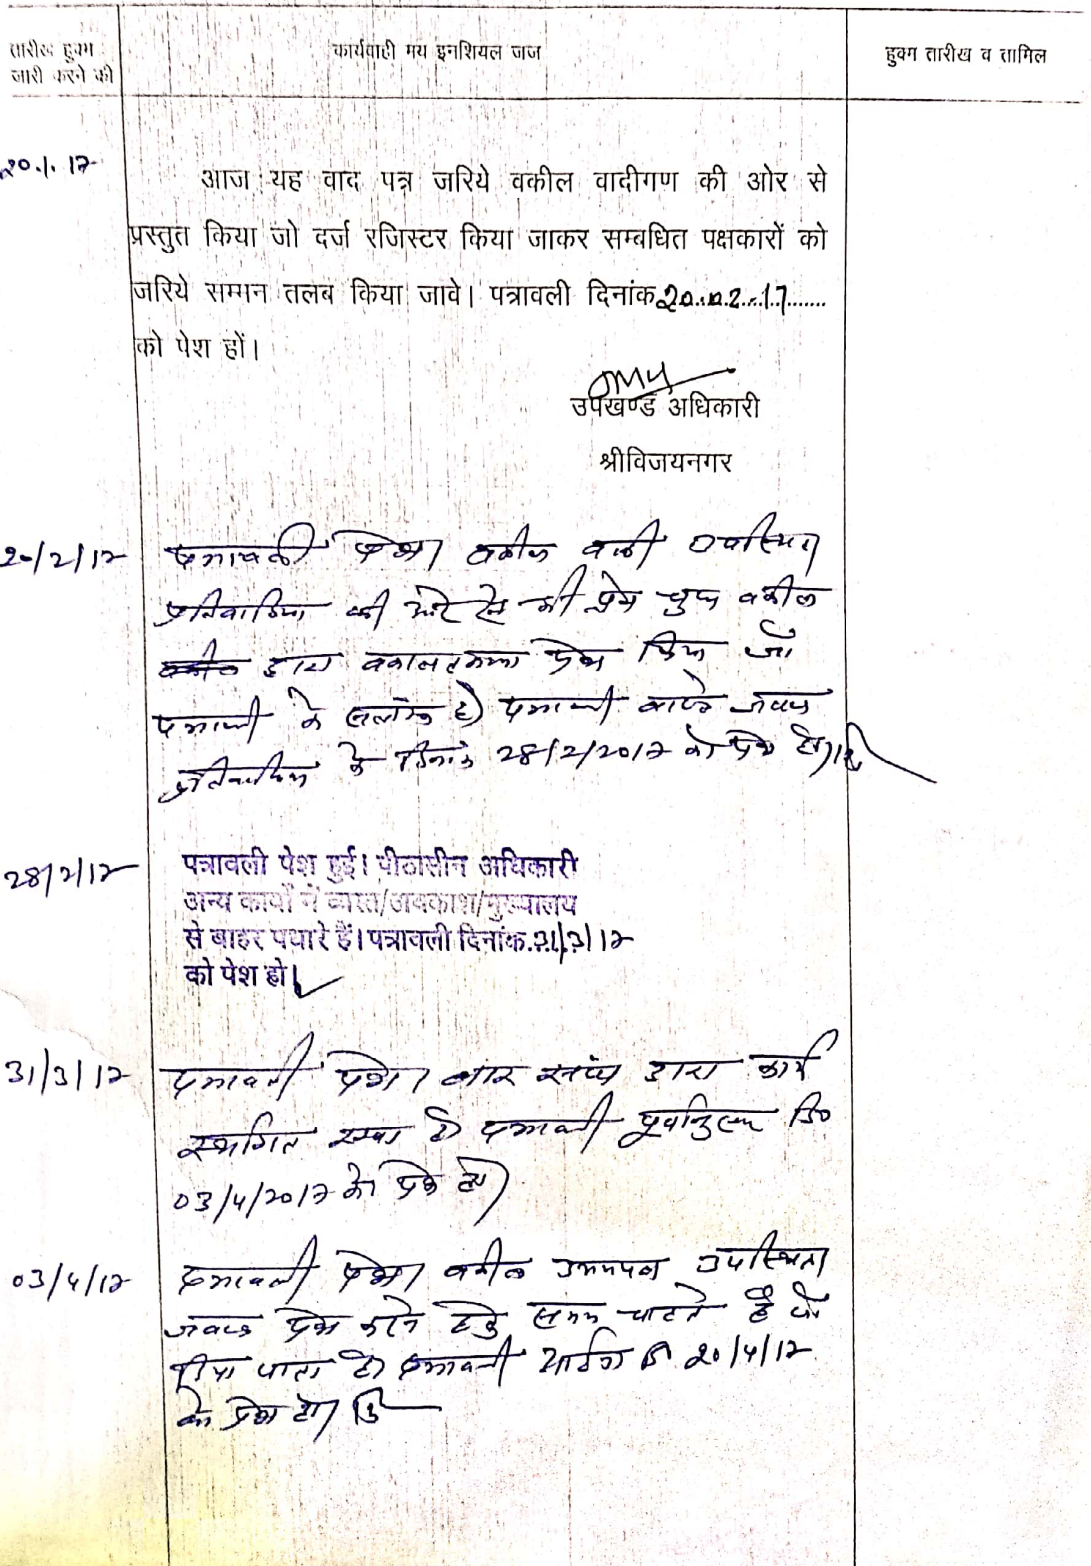 तारीख हुक्म
जारी करने की
कार्यवाही मय इनशियल जज
हुक्म तारीख व तामिल
20.1.17
आज यह वाद पत्र जरिये वकील वादीगण की ओर से
प्रस्तुत किया जो दर्ज रजिस्टर किया जाकर सम्बधित पक्षकारों को
जरिये सम्मन तलब किया जावे। पत्रावली दिनांक 20.02.17
को पेश हों।
उपखण्ड अधिकारी
श्रीविजयनगर
20/2/17 पत्रावली पेश। वकील वादी उपस्थित।
की ओर से श्री प्रेम वकील
द्वारा वकालतनामा पेश किया जो
पत्रावली के संलग्न है। पत्रावली वास्ते जवाब
के दिनांक 28/2/2017 को पेश हो।
28/2/17 पत्रावली पेश हुई। पीठासीन अधिकारी
अन्य कार्यों में व्यस्त/अवकाश/मुख्यालय
से बाहर पधारे हैं। पत्रावली दिनांक 31/3/17
को पेश हो।
31/3/17 पत्रावली पेश। बार संघ द्वारा कार्य
स्थगित रखा है। पत्रावली पूर्वानुसार दि०
03/4/2017 को पेश हो।
03/4/17 पत्रावली पेश। वकील उभयपक्ष उपस्थित।
जवाब पेश करने हेतु समय चाहते है जो
दिया जाता है। पत्रावली दि 20/4/17
को पेश हो।